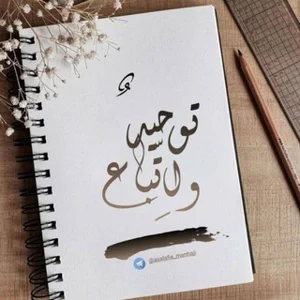 توحيد
واتباع